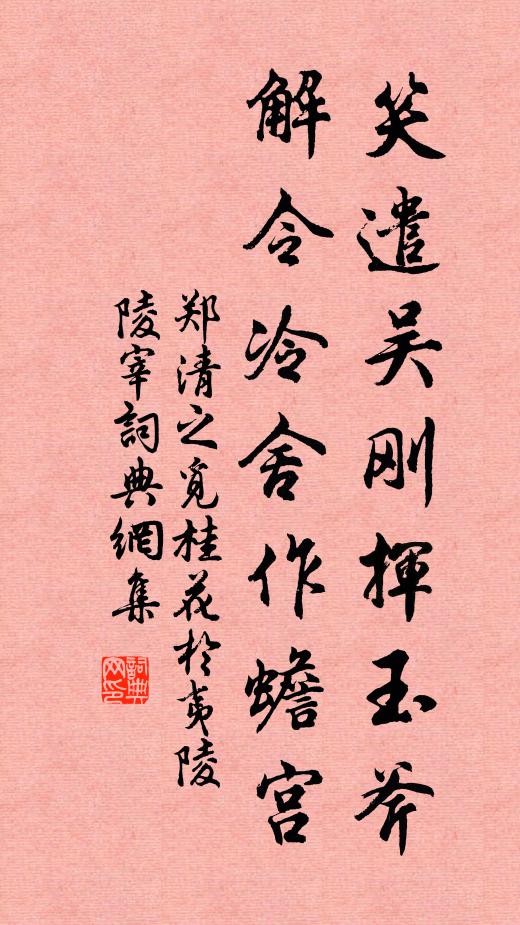 笑遣吴刚揮玉斧
解令冷舍作蟾宫
郑清之觅桂花於夷陵
陵宰詞典網集
詞典
网印